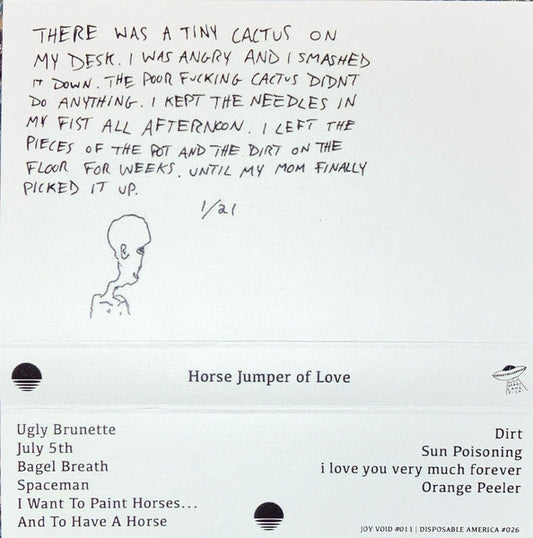 THERE WAS A TINY CACTUS ON
MY DESK. I WAS ANGRY AND I SMASHED
IT DOWN. THE POOR FUCKING CACTUS DIDNT
DO ANYTHING. I KEPT THE NEEDLES IN
MY FIST ALL AFTERNOON. I LEFT THE
PIECES OF THE POT AND THE DIRT ON THE
FLOOR FOR WEEKS. UNTIL MY MOM FINALLY
PICKED IT UP.
1/21
Horse Jumper of Love
Ugly Brunette
July 5th
Bagel Breath
Spaceman
I Want To Paint Horses...
And To Have A Horse
Dirt
Sun Poisoning
i love you very much forever
Orange Peeler
JOY VOID #011 | DISPOSABLE AMERICA #026